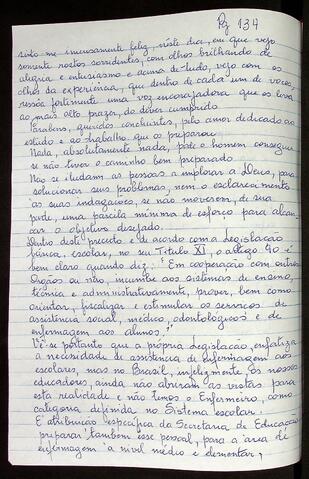 Pg 134
sinto-me imensamente feliz, neste dia, em que vejo
somente rostos sorridentes, com olhos brilhando de
alegria e entusiasmo e acima de tudo, vejo com os
olhos da experiencia, que dentro de cada um de voces
ressôa fortemente uma voz encorajadora que os leva
ao mais alto prazer, do dever cumprido.
Parabens, queridos concluintes, pelo amor dedicado ao
estudo e ao trabalho que os preparou.
Nada, absolutamente nada, pode o homem conseguir
se não tiver o caminho bem preparado.
Não se iludam as pessoas a implorar a Deus, para
solucionar seus problemas, nem o esclarecimento
às suas indagações, se não moverem, de sua
parte, uma parcela minima de esforço para alcan-
çar o objetivo desejado.
Dentro deste preceito e de acordo com a Legislação
básica, escolar, no seu Titulo XI, o artigo 90 é
bem claro quando diz: "Em cooperação com outros
Orgãos ou não, incumbe aos sistemas de ensino,
técnica e administrativamente, prover, bem como
orientar, fiscalizar e estimular os serviços de
assistência social, médico, odontológicos e de
enfermagem aos alunos."
Vê-se portanto que a própria Legislação, enfatiza
a necessidade de assistencia de enfermagem aos
escolares, mas no Brasil, infelizmente, os nossos
educadores, ainda não abriram as vistas para
esta realidade e não temos o Enfermeiro, como
categoria definida no Sistema escolar.
É atribuição específica da Secretaria de Educação
preparar também esse pessoal, para a área de
enfermagem à nivel médio e elementar,